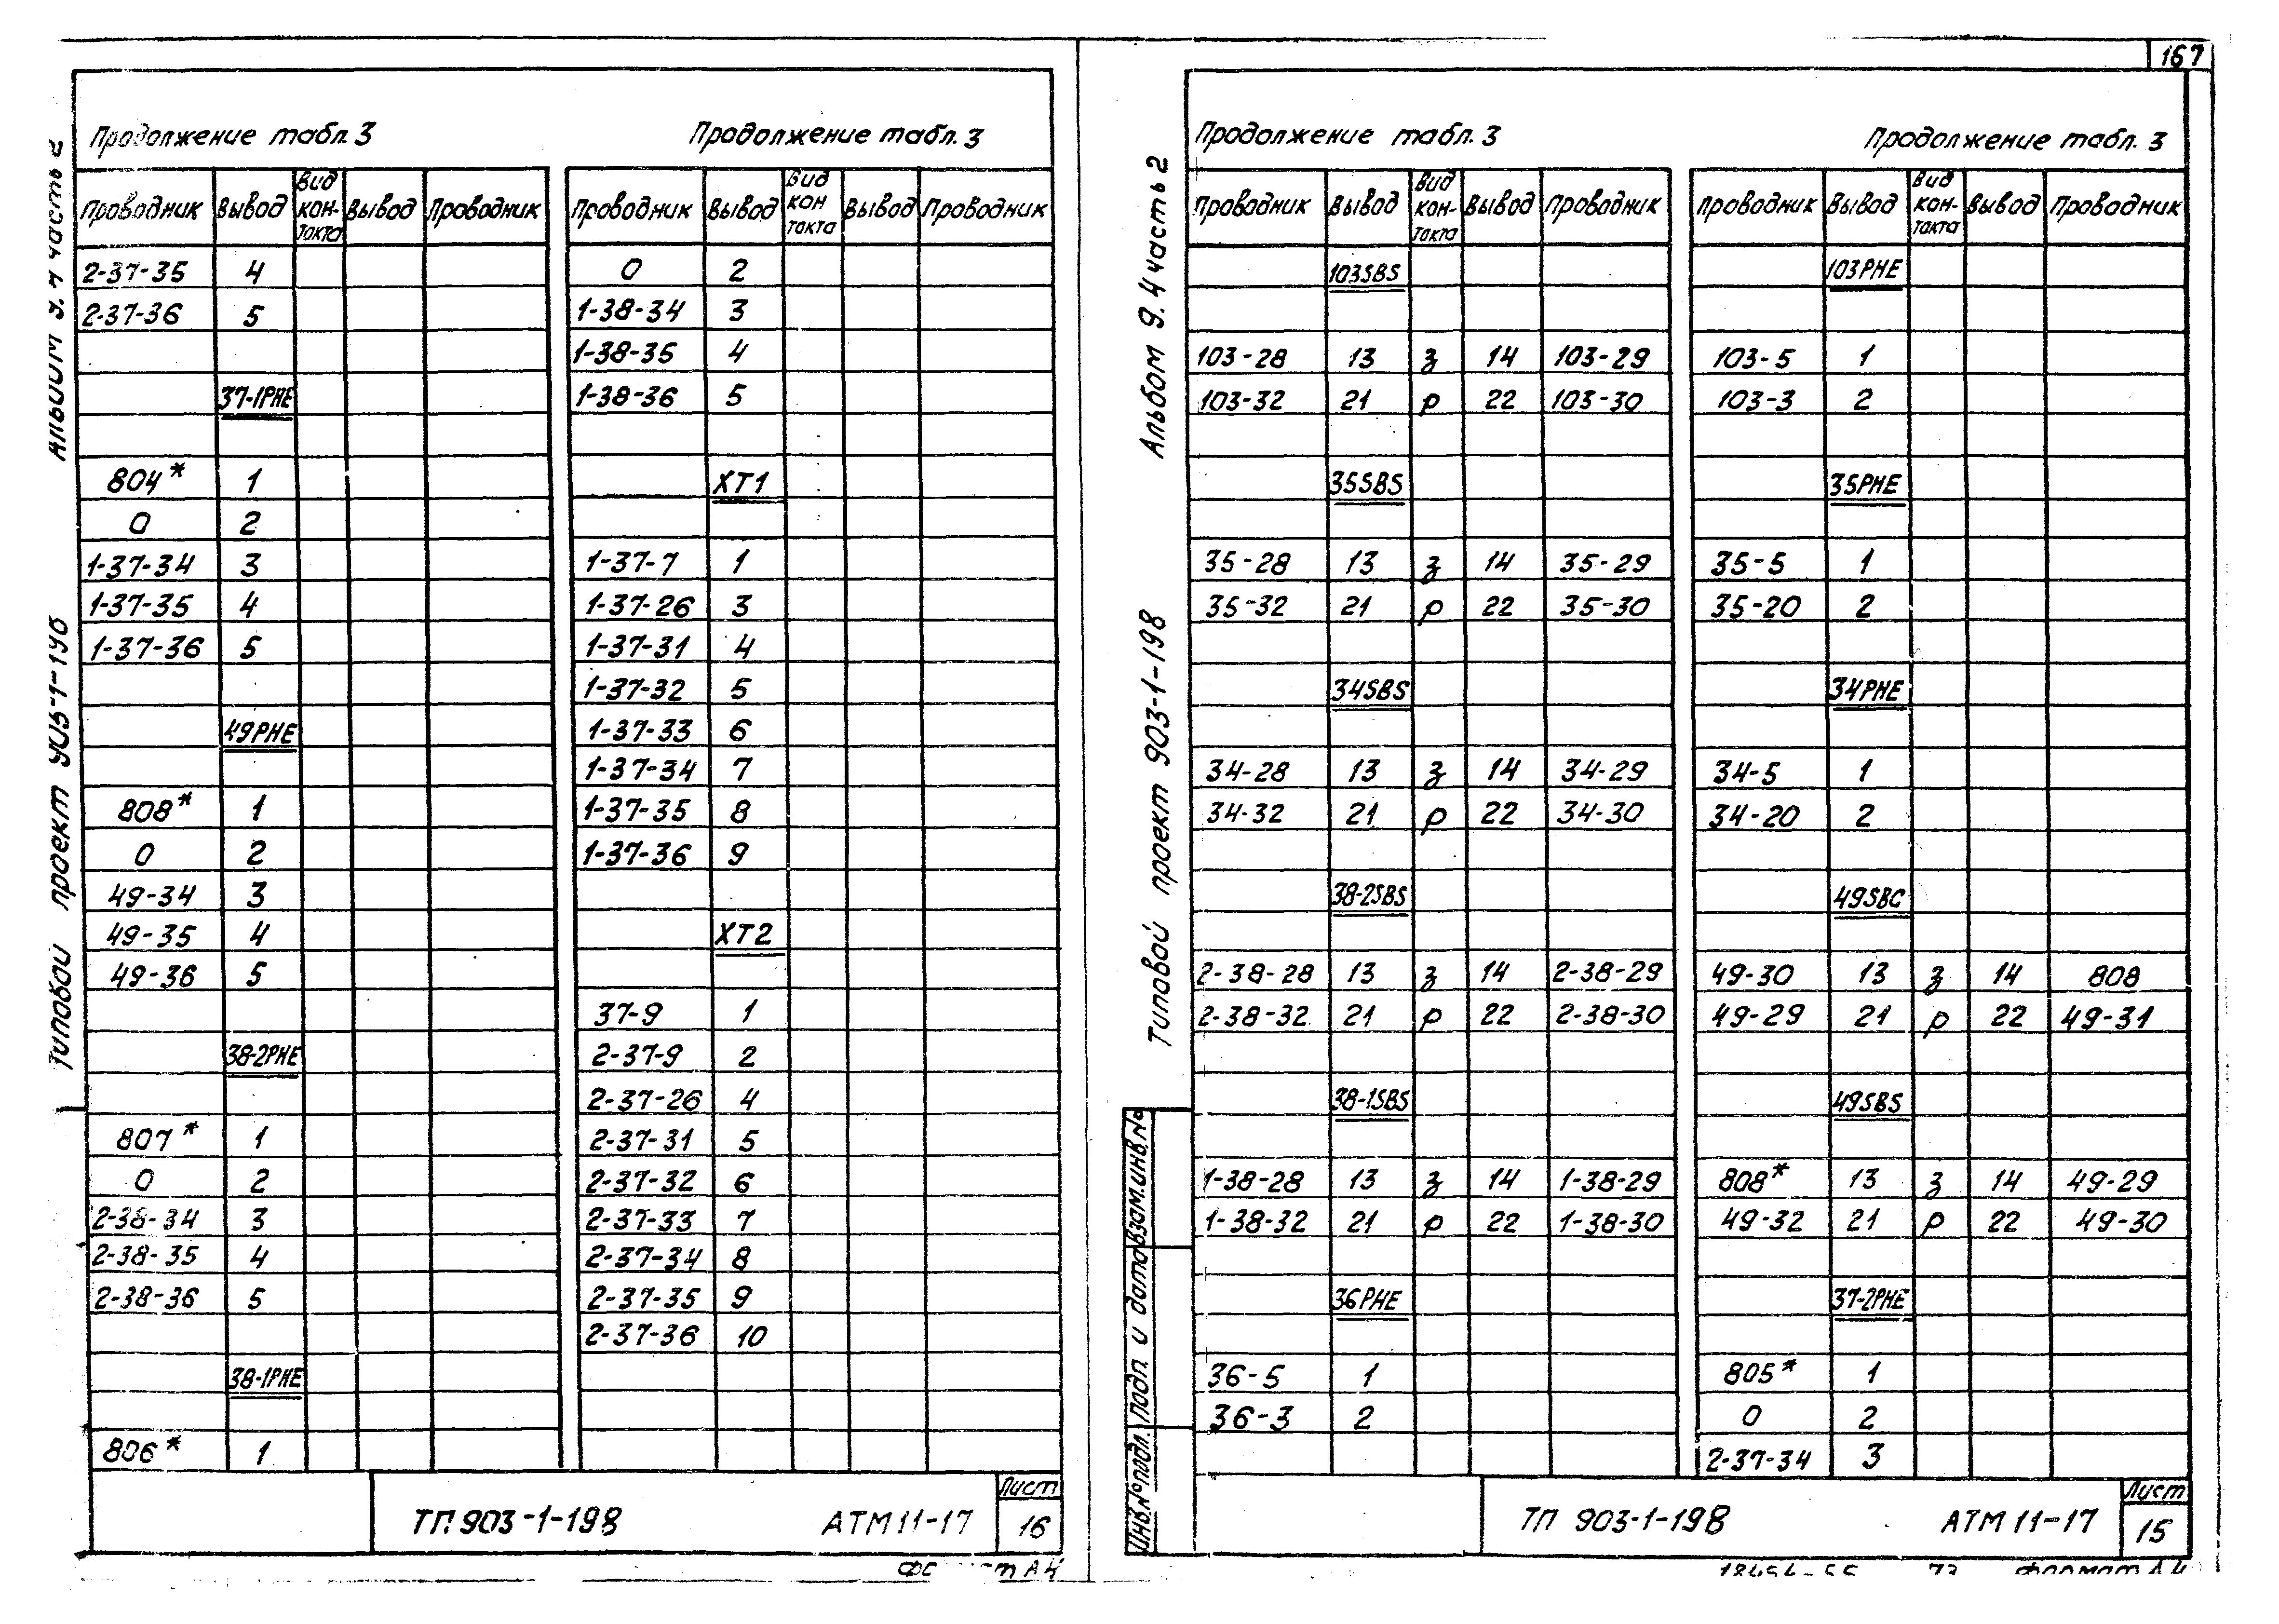 167
Продолжение табл. 3
Продолжение табл. 3
Проводник Вывод Вид кон-такта Вывод Проводник
Проводник Вывод Вид кон такта Вывод Проводник
2-37-35 4
2-37-36 5
37-1РНЕ
804* 1
0 2
1-37-34 3
1-37-35 4
1-37-36 5
49РНЕ
808* 1
0 2
49-34 3
49-35 4
49-36 5
38-2РНЕ
807* 1
0 2
2-38-34 3
2-38-35 4
2-38-36 5
38-1РНЕ
806* 1
0 2
1-38-34 3
1-38-35 4
1-38-36 5
ХТ1
1-37-7 1
1-37-26 3
1-37-31 4
1-37-32 5
1-37-33 6
1-37-34 7
1-37-35 8
1-37-36 9
ХТ2
37-9 1
2-37-9 2
2-37-26 4
2-37-31 5
2-37-32 6
2-37-33 7
2-37-34 8
2-37-35 9
2-37-36 10
ТП 903-1-198 АТМ 11-17
Лист
16
Типовой проект
часть 2
Продолжение табл. 3
Продолжение табл. 3
Проводник Вывод Вид кон-такта Вывод Проводник
Проводник Вывод Вид кон-такта Вывод Проводник
103SBS
103-28 13 з 14 103-29
103-32 21 р 22 103-30
35SBS
35-28 13 з 14 35-29
35-32 21 р 22 35-30
34SBS
34-28 13 з 14 34-29
34-32 21 р 22 34-30
38-2SBS
2-38-28 13 з 14 2-38-29
2-38-32 21 р 22 2-38-30
38-1SBS
1-38-28 13 з 14 1-38-29
1-38-32 21 р 22 1-38-30
36РНЕ
36-5 1
36-3 2
103РНЕ
103-5 1
103-3 2
35РНЕ
35-5 1
35-20 2
34РНЕ
34-5 1
34-20 2
49SBC
49-30 13 з 14 808
49-29 21 р 22 49-31
49SBS
808* 13 з 14 49-29
49-32 21 р 22 49-30
37-2РНЕ
805* 1
0 2
2-37-34 3
ТП 903-1-198 АТМ 11-17
Лист
15
Типовой проект 903-1-198 Альбом 9.4 часть 2
Инв.№ подл. Подп. и дата Взам.инв.№